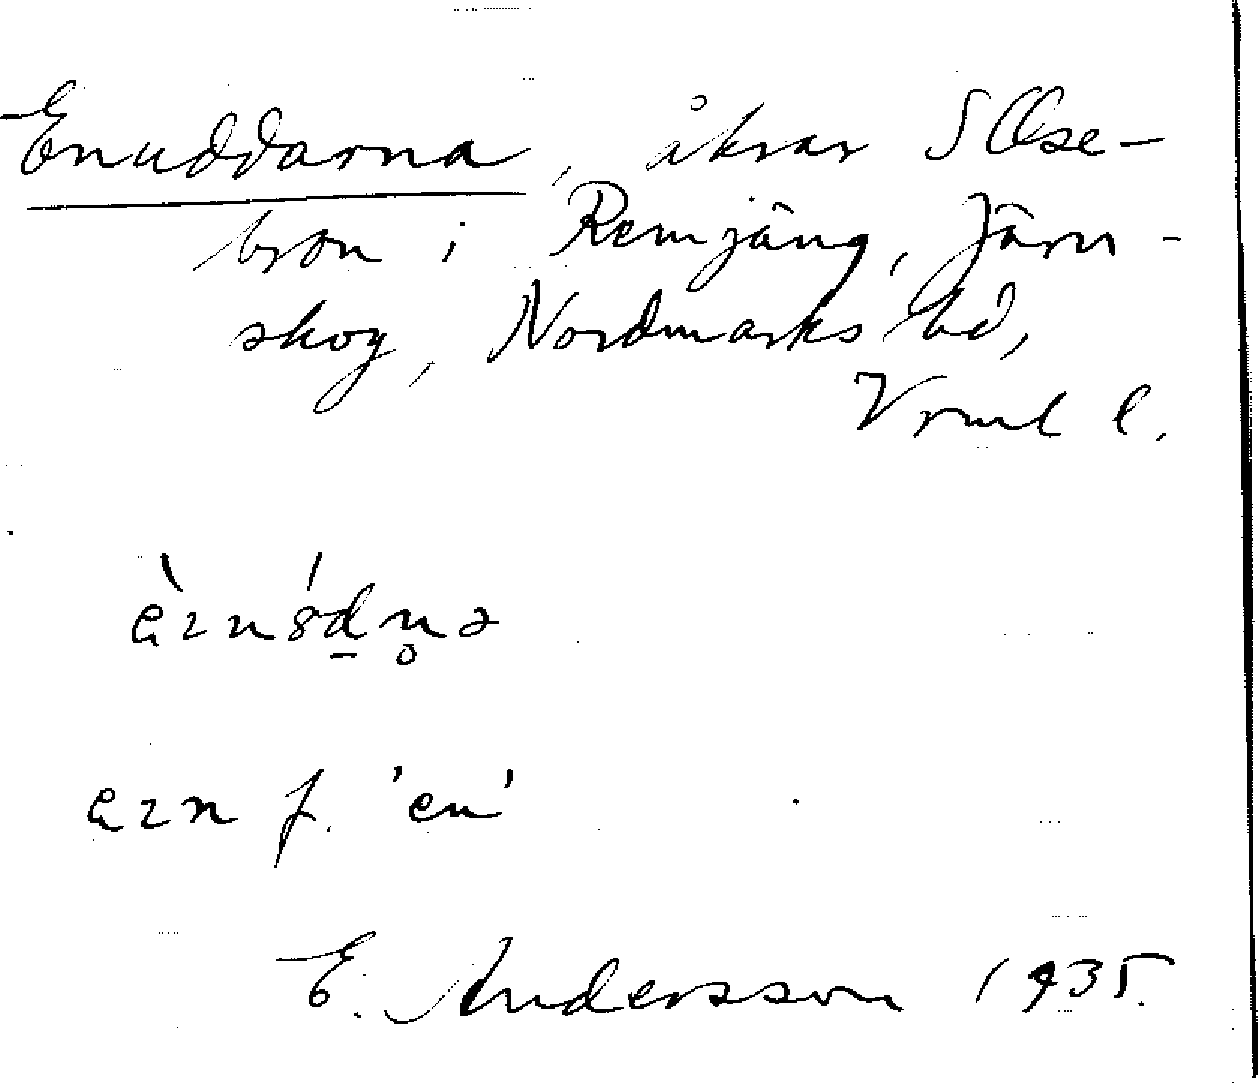 Enuddarna, åkrar S Ose-
bron i Remjäng, Järn-
skog, Nordmarks hd,
Vrml l.
e̩2nɞdn̥ə
e̩2n f. 'en'
E. Andersson 1935.